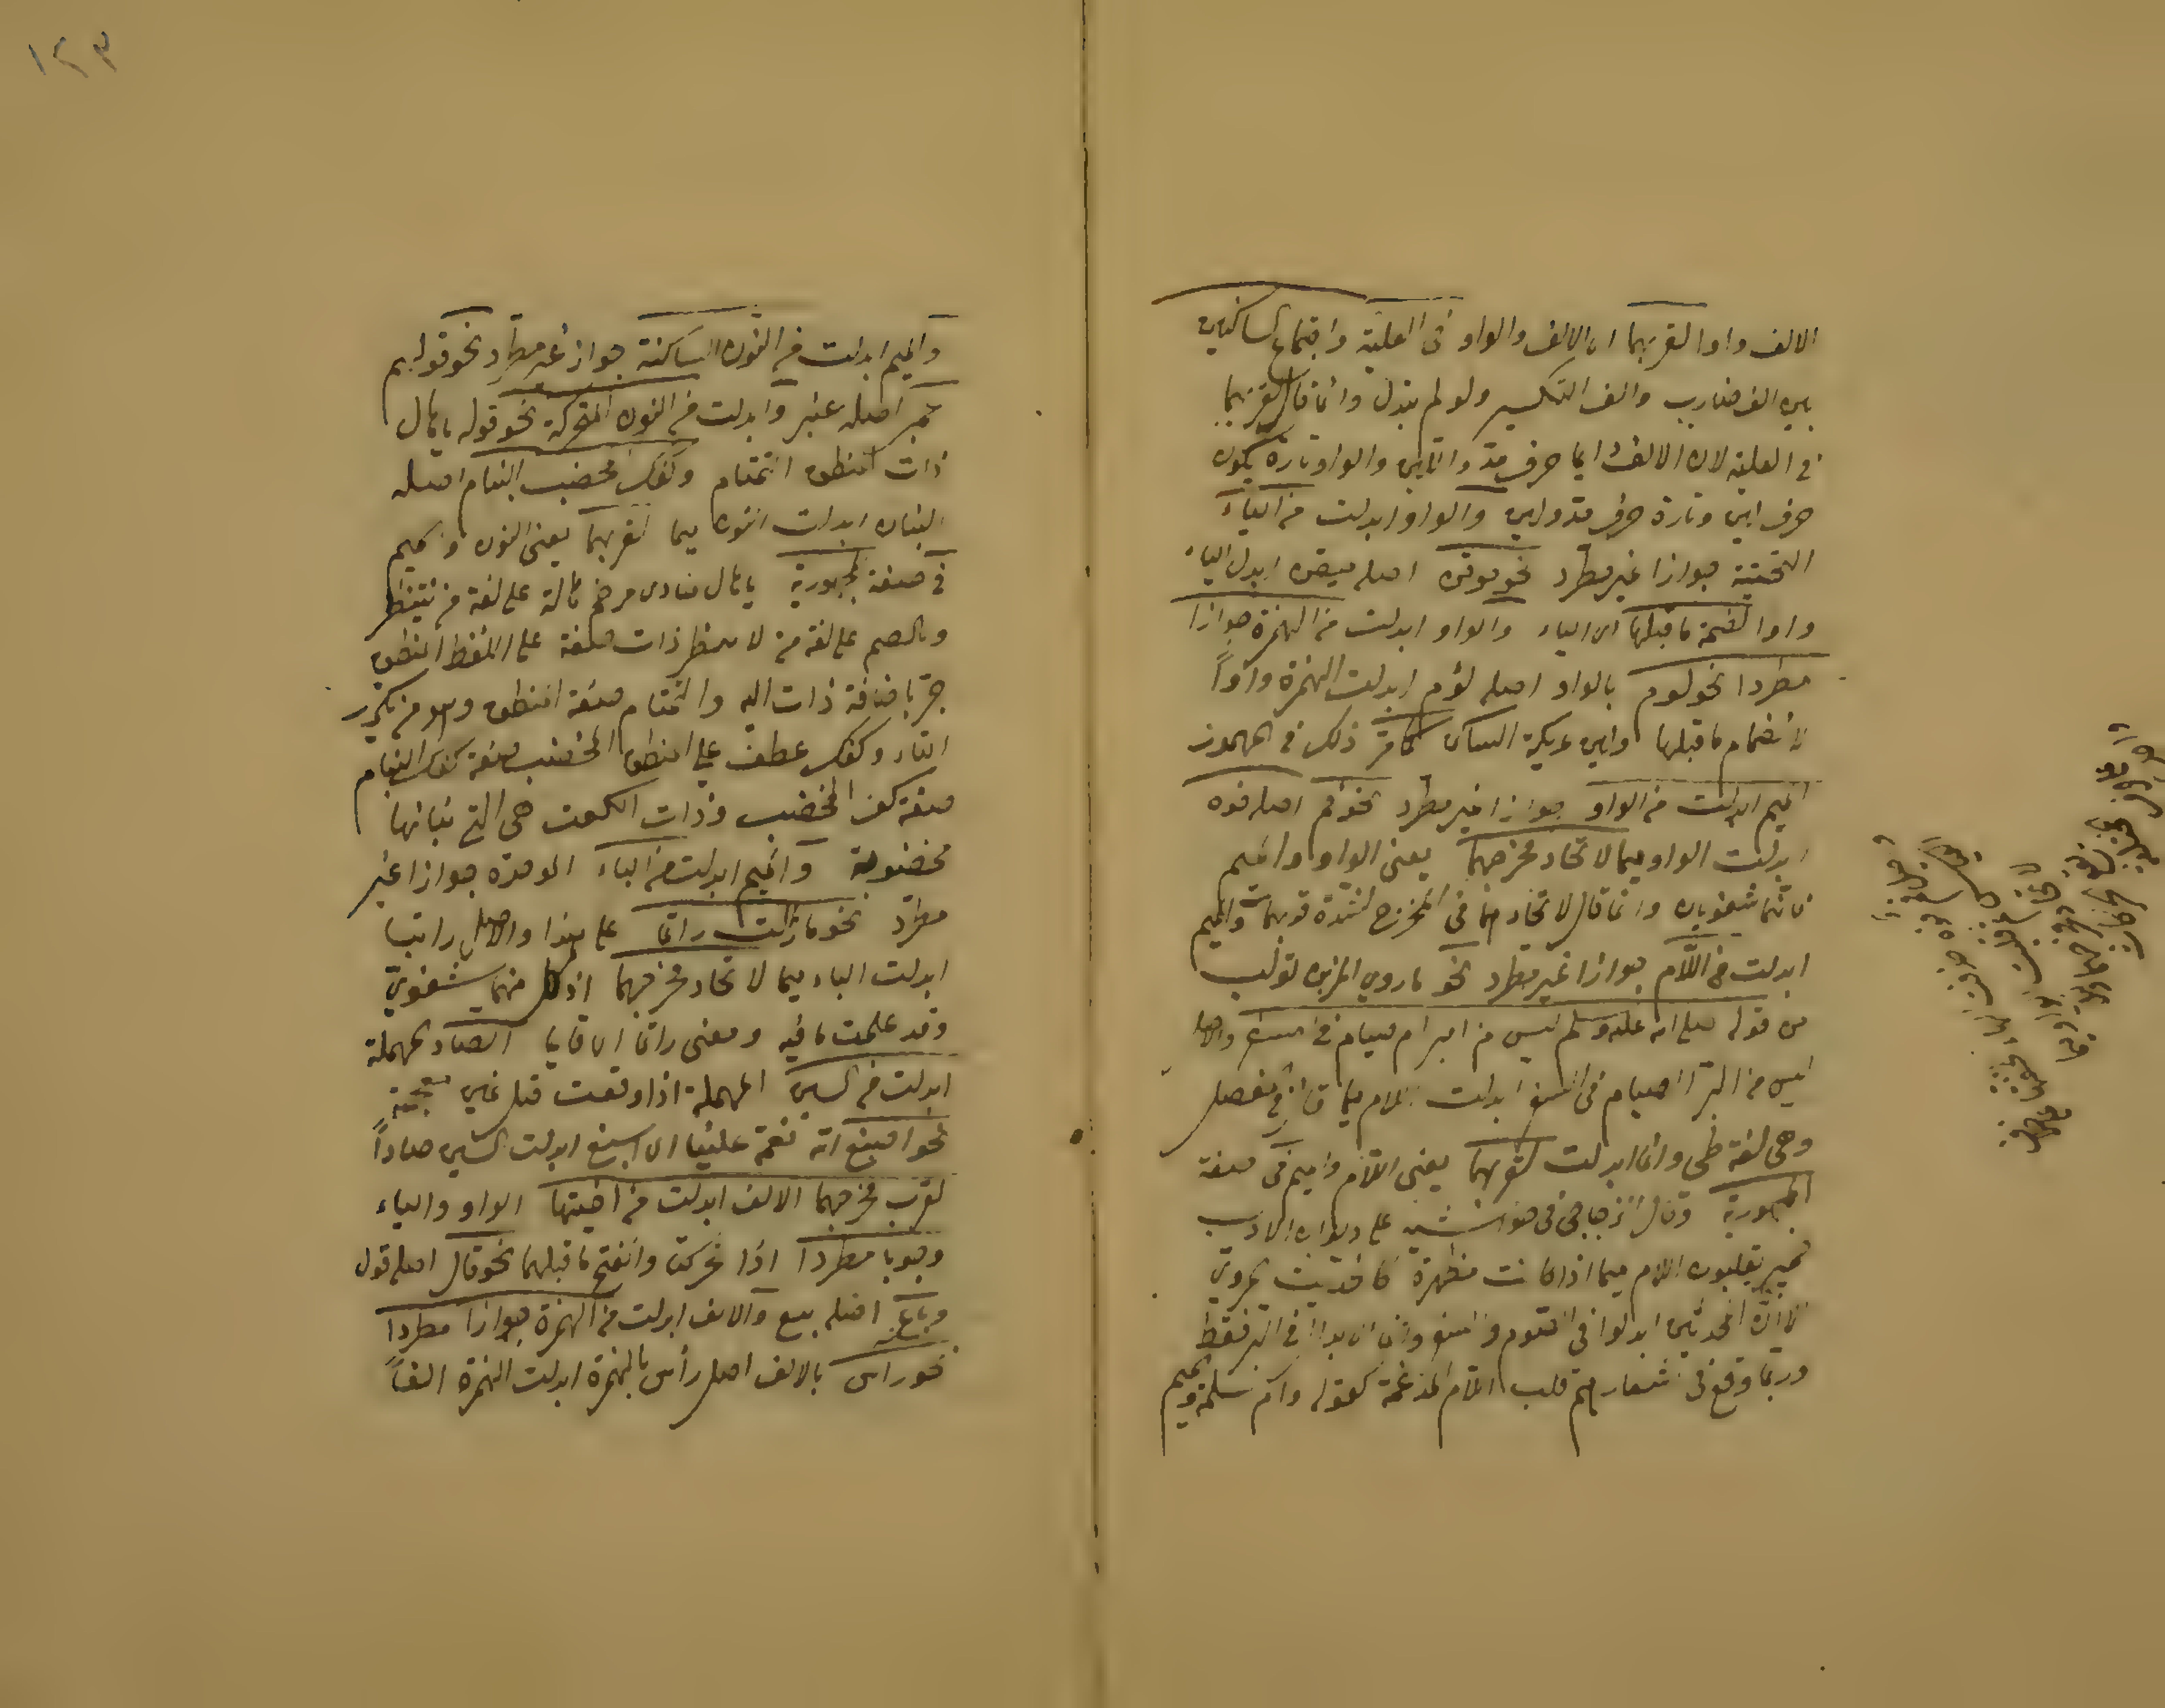 الالف واوا لقربهما اى الالف والواو فى العلية واجتماع الساكنين
بين الف ضارب والف التكسير ولو لم تبدل وانما قال لقربهما
فى العلية لان الالف دايما حرف مد والواو تارة يكون
حرف لين وتارة حرف مد ولين والواو ابدلت من الياء
التحتية جوازا غير مطرد نحو موقن اصله ميقن ابدل الياء
واوا لضمة ما قبلها اى الياء والواو ابدلت من الهمزة جوازا
مطردا نحو لوم بالواو اصله لؤم ابدلت الهمزة واواً
لانضمام ما قبلها ولين عريكة الساكن كما مر ذلك فى المهموز
الميم ابدلت من الواو جوازا غير مطرد نحو فم اصله فوه
ابدلت الواو ميما لاتحاد مخرجهما يعنى الواو والميم
فانهما شفويان وانما قال لاتحادهما فى المخرج لشدة قربهما والميم
ابدلت من اللّام جوازا غير مطرد نحو ما روى النمر بن تولب
من قوله صلى الله عليه وسلم ليس من امبر امصيام فى امسفر والاصل
ليس من البر الصيام فى السفر ابدلت اللام ميما
وهى لغة طى وانما ابدلت لقربهما يعنى اللام والميم فى صفة
المجهورية وقال الزجاجى فى حواشيه على ديوان الادب
حمير يقلبون اللام ميما اذا كانت مظهرة كالحديث المروى
الا ان المحدثين ابدلوا فى الصوم والسفر وانما الابدال فى البر فقط
وربما وقع فى اشعارهم قلب اللام المدغمة كقوله وام سلمة والميم
١٢٣
والميم ابدلت من النون الساكنة جوازا غير مطرد نحو قولهم
عمبر اصله عنبر وابدلت من النون المتحركة نحو قوله يا هال
ذات المنطق التمتام وكفك المخضب البنام اصله
البنان ابدلت النون ميما لقربهما يعنى النون والميم
فى صفة المجهورية يا هال منادى مرخم هالة على لغة من ينتظر
وبالضم على لغة من لا ينتظر ذات صفة على اللفظ المنطق
جر باضافة ذات اليه والتمتام صفة المنطق وهو من يكرر
التاء وكفك عطف على المنطق المخضب صفة كفك البنام
صفة كف المخضب وذات الكف هى التى بنانها
مخضوبة والميم ابدلت من الباء الموحدة جوازا غير
مطرد نحو ما زلت راتما على هذا والاصل راتبا
ابدلت الباء ميما لاتحاد مخرجهما اذ كل منهما شفوى
وقد علمت ما فيه ومعنى راتما اى قايما الصاد المهملة
ابدلت من السين المهملة اذا وقعت قبل غين معجمة
نحو اصبغ الله نعمة علينا اى اسبغ ابدلت السين صاداً
لقرب مخرجهما الالف ابدلت من اختيها الواو والياء
وجوبا مطردا اذا تحركتا وانفتح ما قبلهما نحو قال اصله قول
وباع اصله بيع والالف ابدلت من الهمزة جوازا مطردا
نحو راس بالالف اصله رأس بالهمزة ابدلت الهمزة الفاً